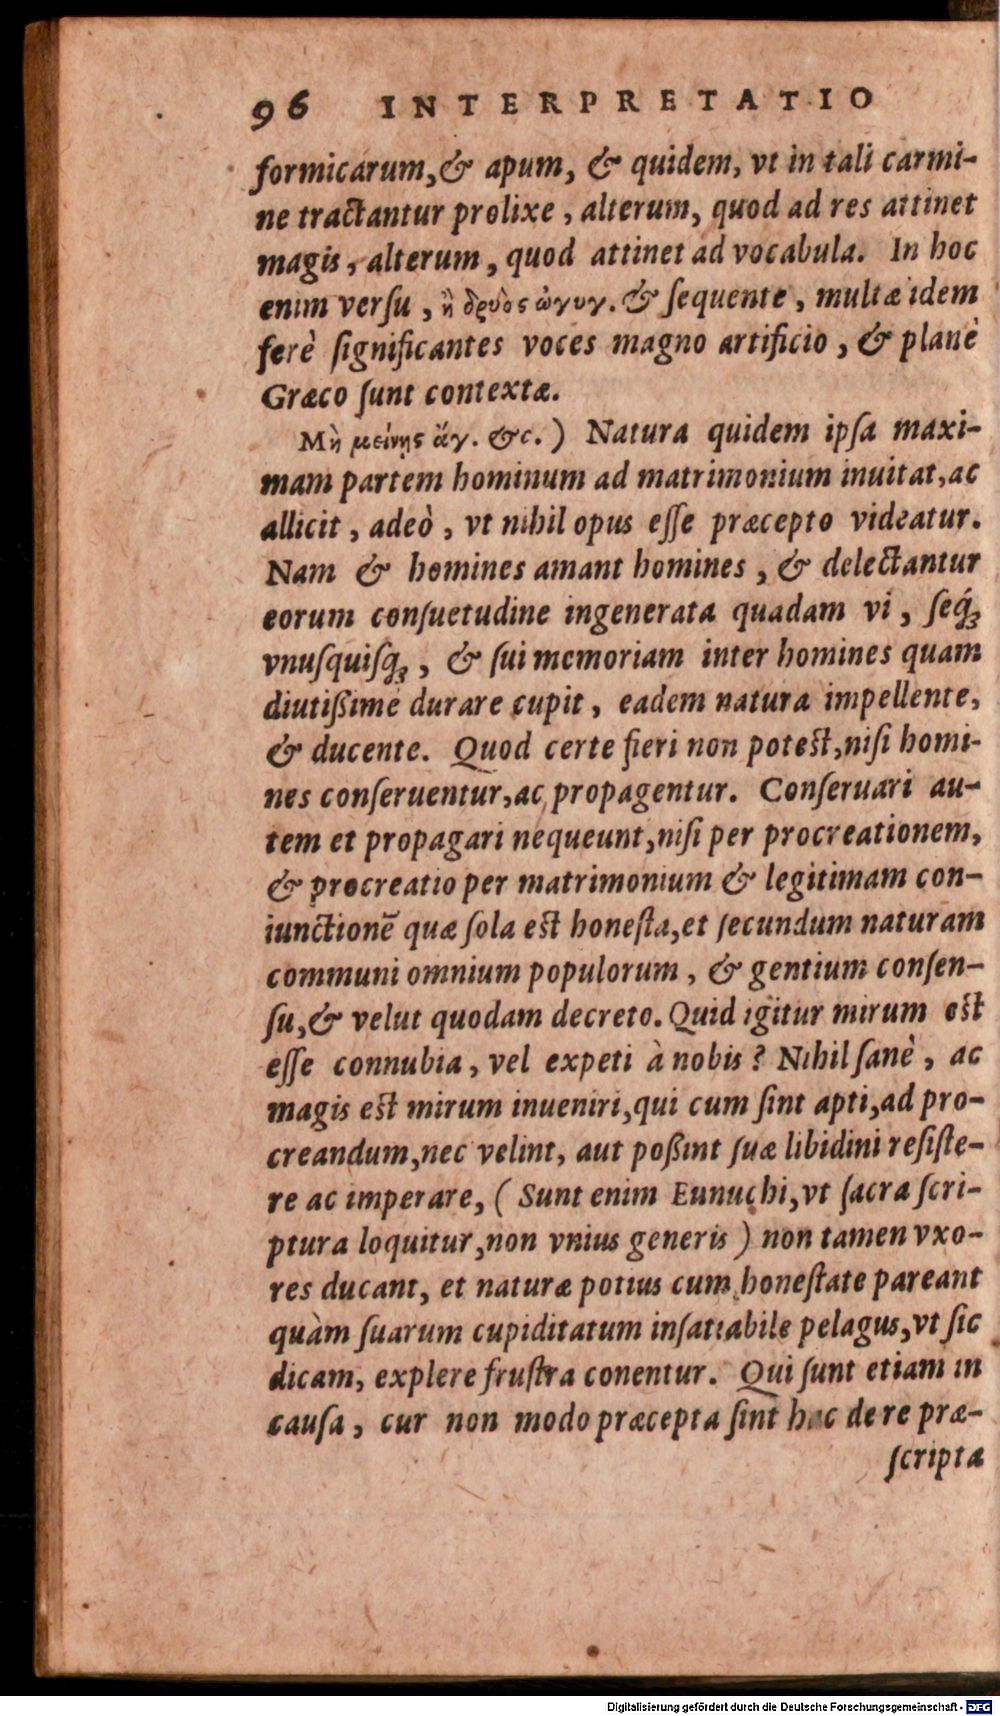 96 INTERPRETATIO
formicarum,& apum, & quidem, vt in tali carmi-
ne tractantur prolixe, alterum, quod ad res attinet
magis, alterum, quod attinet ad vocabula. In hoc
enim versu, ἢ δρυὸς ὠγυγ. & sequente, multæ idem
ferè significantes voces magno artificio, & planè
Græco sunt contextæ.
Μὴ μείνῃς ἄγ. &c.) Natura quidem ipsa maxi-
mam partem hominum ad matrimonium inuitat, ac
allicit, adeò, vt nihil opus esse præcepto videatur.
Nam & homines amant homines, & delectantur
eorum consuetudine ingenerata quadam vi, seq́ꝫ
vnusquisqꝫ, & sui memoriam inter homines quam
diutißime durare cupit, eadem natura impellente,
& ducente. Quod certe fieri non potest, nisi homi-
nes conseruentur, ac propagentur. Conseruari au-
tem et propagari nequeunt, nisi per procreationem,
& procreatio per matrimonium & legitimam con-
iunctionē quæ sola est honesta, et secundum naturam
communi omnium populorum, & gentium consen-
su, & velut quodam decreto. Quid igitur mirum est
esse connubia, vel expeti à nobis? Nihil sanè, ac
magis est mirum inueniri, qui cum sint apti, ad pro-
creandum, nec velint, aut poßint suæ libidini resiste-
re ac imperare, (Sunt enim Eunuchi, vt sacra scri-
ptura loquitur, non vnius generis) non tamen vxo-
res ducant, et naturæ potius cum honestate pareant
quàm suarum cupiditatum insatiabile pelagus, vt sic
dicam, explere frustra conentur. Qui sunt etiam in
causa, cur non modo præcepta sint hac de re præ-
scripta
Digitalisierung gefördert durch die Deutsche Forschungsgemeinschaft - DFG